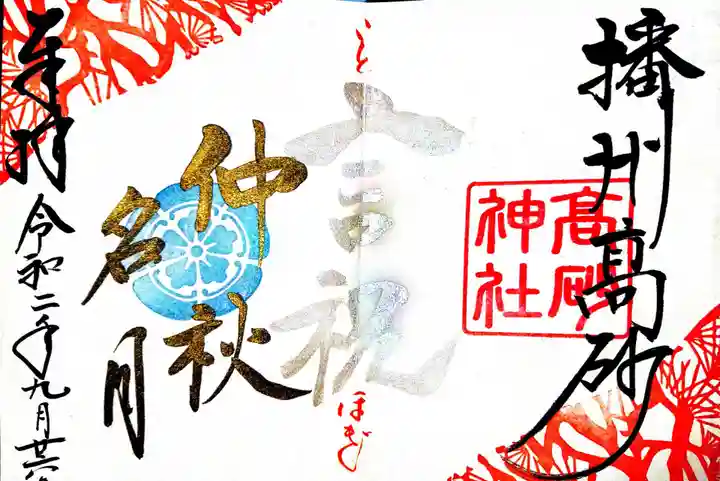 播州高砂
高砂
神社
こと
言祝
ほぎ
仲秋
名月
奉拝
令和二年九月廿